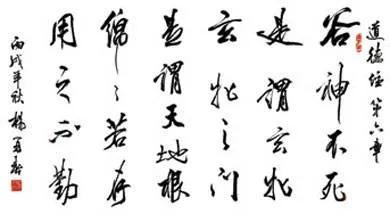 道德经第六章
谷神不死
是谓玄牝
玄牝之门
是谓天地根
绵々若存
用之不勤
丙戌年秋杨